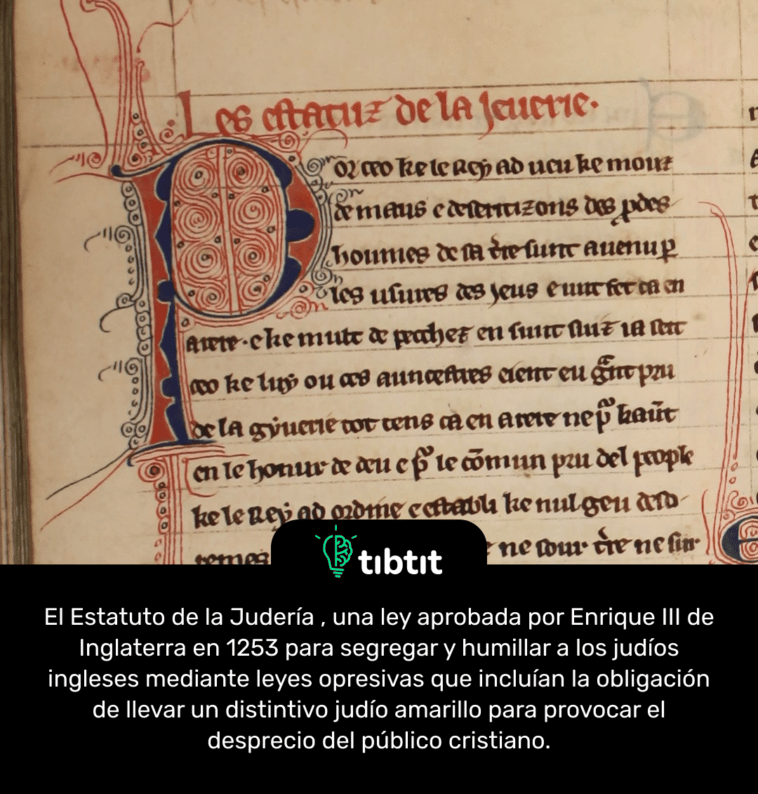 Les estatuz de la Jeuerie.
Por ceo ke le Rey ad ueu ke mouz
de maus e desheritizons des pdes
houmes de sa tre sunt auenu p
les usures des Jeus e unt fet ca en
arere. e ke mutz de pecchez en sunt siuz ia seit
ceo ke luy ou ces auncestres eient eu gnt pru
de la gyuerie tot tens ca en arere ne p kaūt
en le honur de deu e p le cōmun pru del people
ke le Rey ad ordine e establi ke nul geu deso
remes ne sour tre ne sur
tibtit
El Estatuto de la Judería , una ley aprobada por Enrique III de
Inglaterra en 1253 para segregar y humillar a los judíos
ingleses mediante leyes opresivas que incluían la obligación
de llevar un distintivo judío amarillo para provocar el
desprecio del público cristiano.